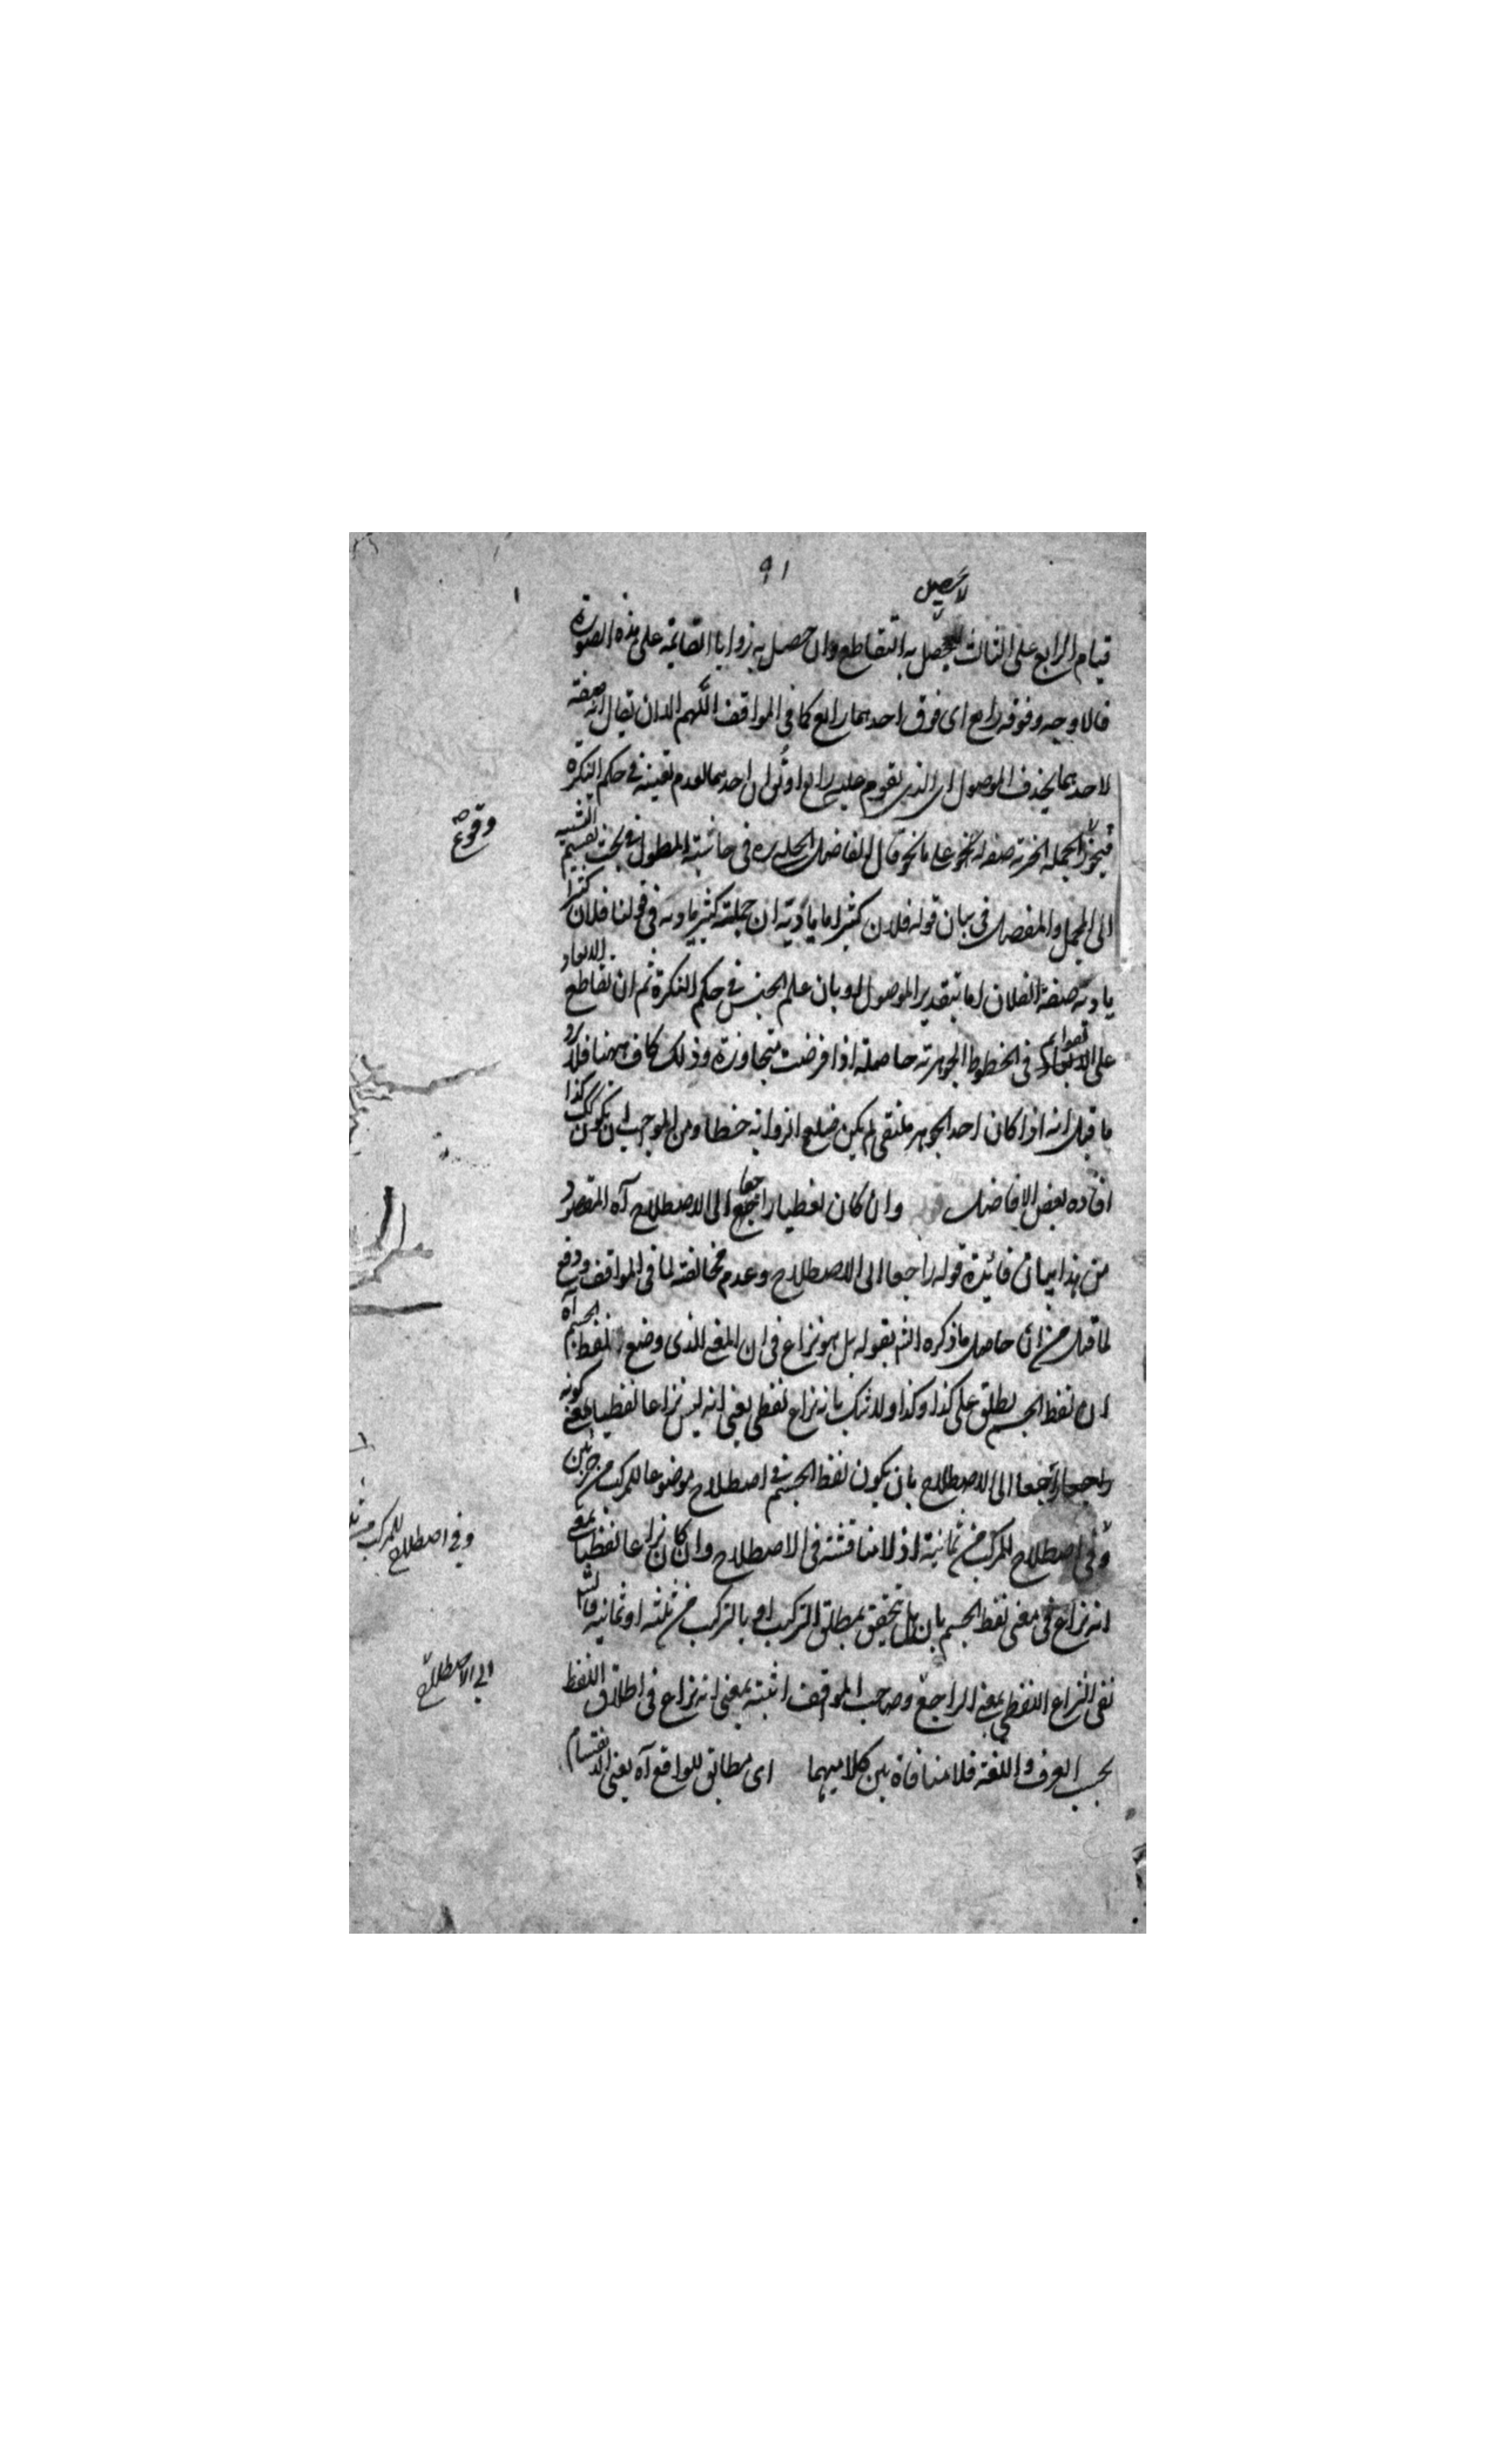 ٩١
لا يحصل
قيام الرابع على الثالث به التقاطع وان حصل به زوايا القائمة على هذه الصورة
فالاوجه وفوقه رابع اى فوق احدهما رابع كما فى المواقف اللهم الا ان يقال انه صفة
لاحدهما بحذف الموصول اى الذى يقوم عليه رابع او لان احدهما لعدم تعينه فى حكم النكرة
فيجوز الجملة الخبرية صفة له على ما نحو قال الفاضل الجلبى فى حاشية المطول فى بحث تقسيم التشبيه
الى المجمل والمفصل فى بيان قوله فلان كثير اياديه ان جملة كثير اياديه فى قولنا فلان كثير
اياديه صفة لفلان اما بتقدير الموصول او بان علم الجنس فى حكم النكرة ثم ان تقاطع الابعاد
على قوايم فى الخطوط الجوهرية حاصلة اذا فرضت متجاوزة وذلك كاف ههنا فلا يرد
ما قيل انه اذا كان احد الجوهر ملتقى لم يكن ضلع الزواية خطا ومن الموجب ان يكون كذا
افاده بعض الافاضل وان كان لفظيا راجعا الى الاصطلاح آه المقصود
من هذا بيان فائدة قوله راجعا الى الاصطلاح وعدم مخالفته لما فى المواقف ودفع
لما قيل من ان حاصل ما ذكره الشم بقوله بل هو نزاع فى ان المعنى الذى وضع لفظ الجسم آه
ان لفظ الجسم يطلق على كذا وكذا ولا شك بانه نزاع لفظى يعنى انه ليس نزاعا لفظيا بمعنى كونه
راجعا الى الاصطلاح بان يكون لفظ الجسم فى اصطلاح موضوعا للمركب من جزئين
وفى اصطلاح للمركب من ثمانية اذ لا مناقشة فى الاصطلاح وان كان نزاعا لفظيا بمعنى
انه نزاع فى معنى لفظ الجسم بان هل تحقق بمطلق التركيب او بالتركيب من ثلثة او ثمانية فالشم
نفى النزاع اللفظى بمعنى الراجع وصاحب المواقف اثبته بمعنى انه نزاع فى اطلاق اللفظ
بحسب العرف واللغة فلا منافاة بين كلاميهما اى مطابق للواقع آه يعنى الانقسام
وقوع
وفى اصطلاح للمركب من
الى الاصطلاح